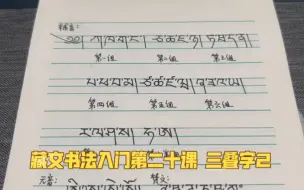 辅音:
ཀ་ཁ་ག་ང ཅ་ཆ་ཇ་ཉ ཏ་ཐ་ད་ན
第一组 第二组 第三组
པ་ཕ་བ་མ ཙ་ཚ་ཛ་ཝ ཞ་ཟ་འ་ཡ
第四组 第五组 第六组
ར་ལ་ཤ་ས ཧ་ཨ
藏文书法入门第二十课 三叠字2
元音: